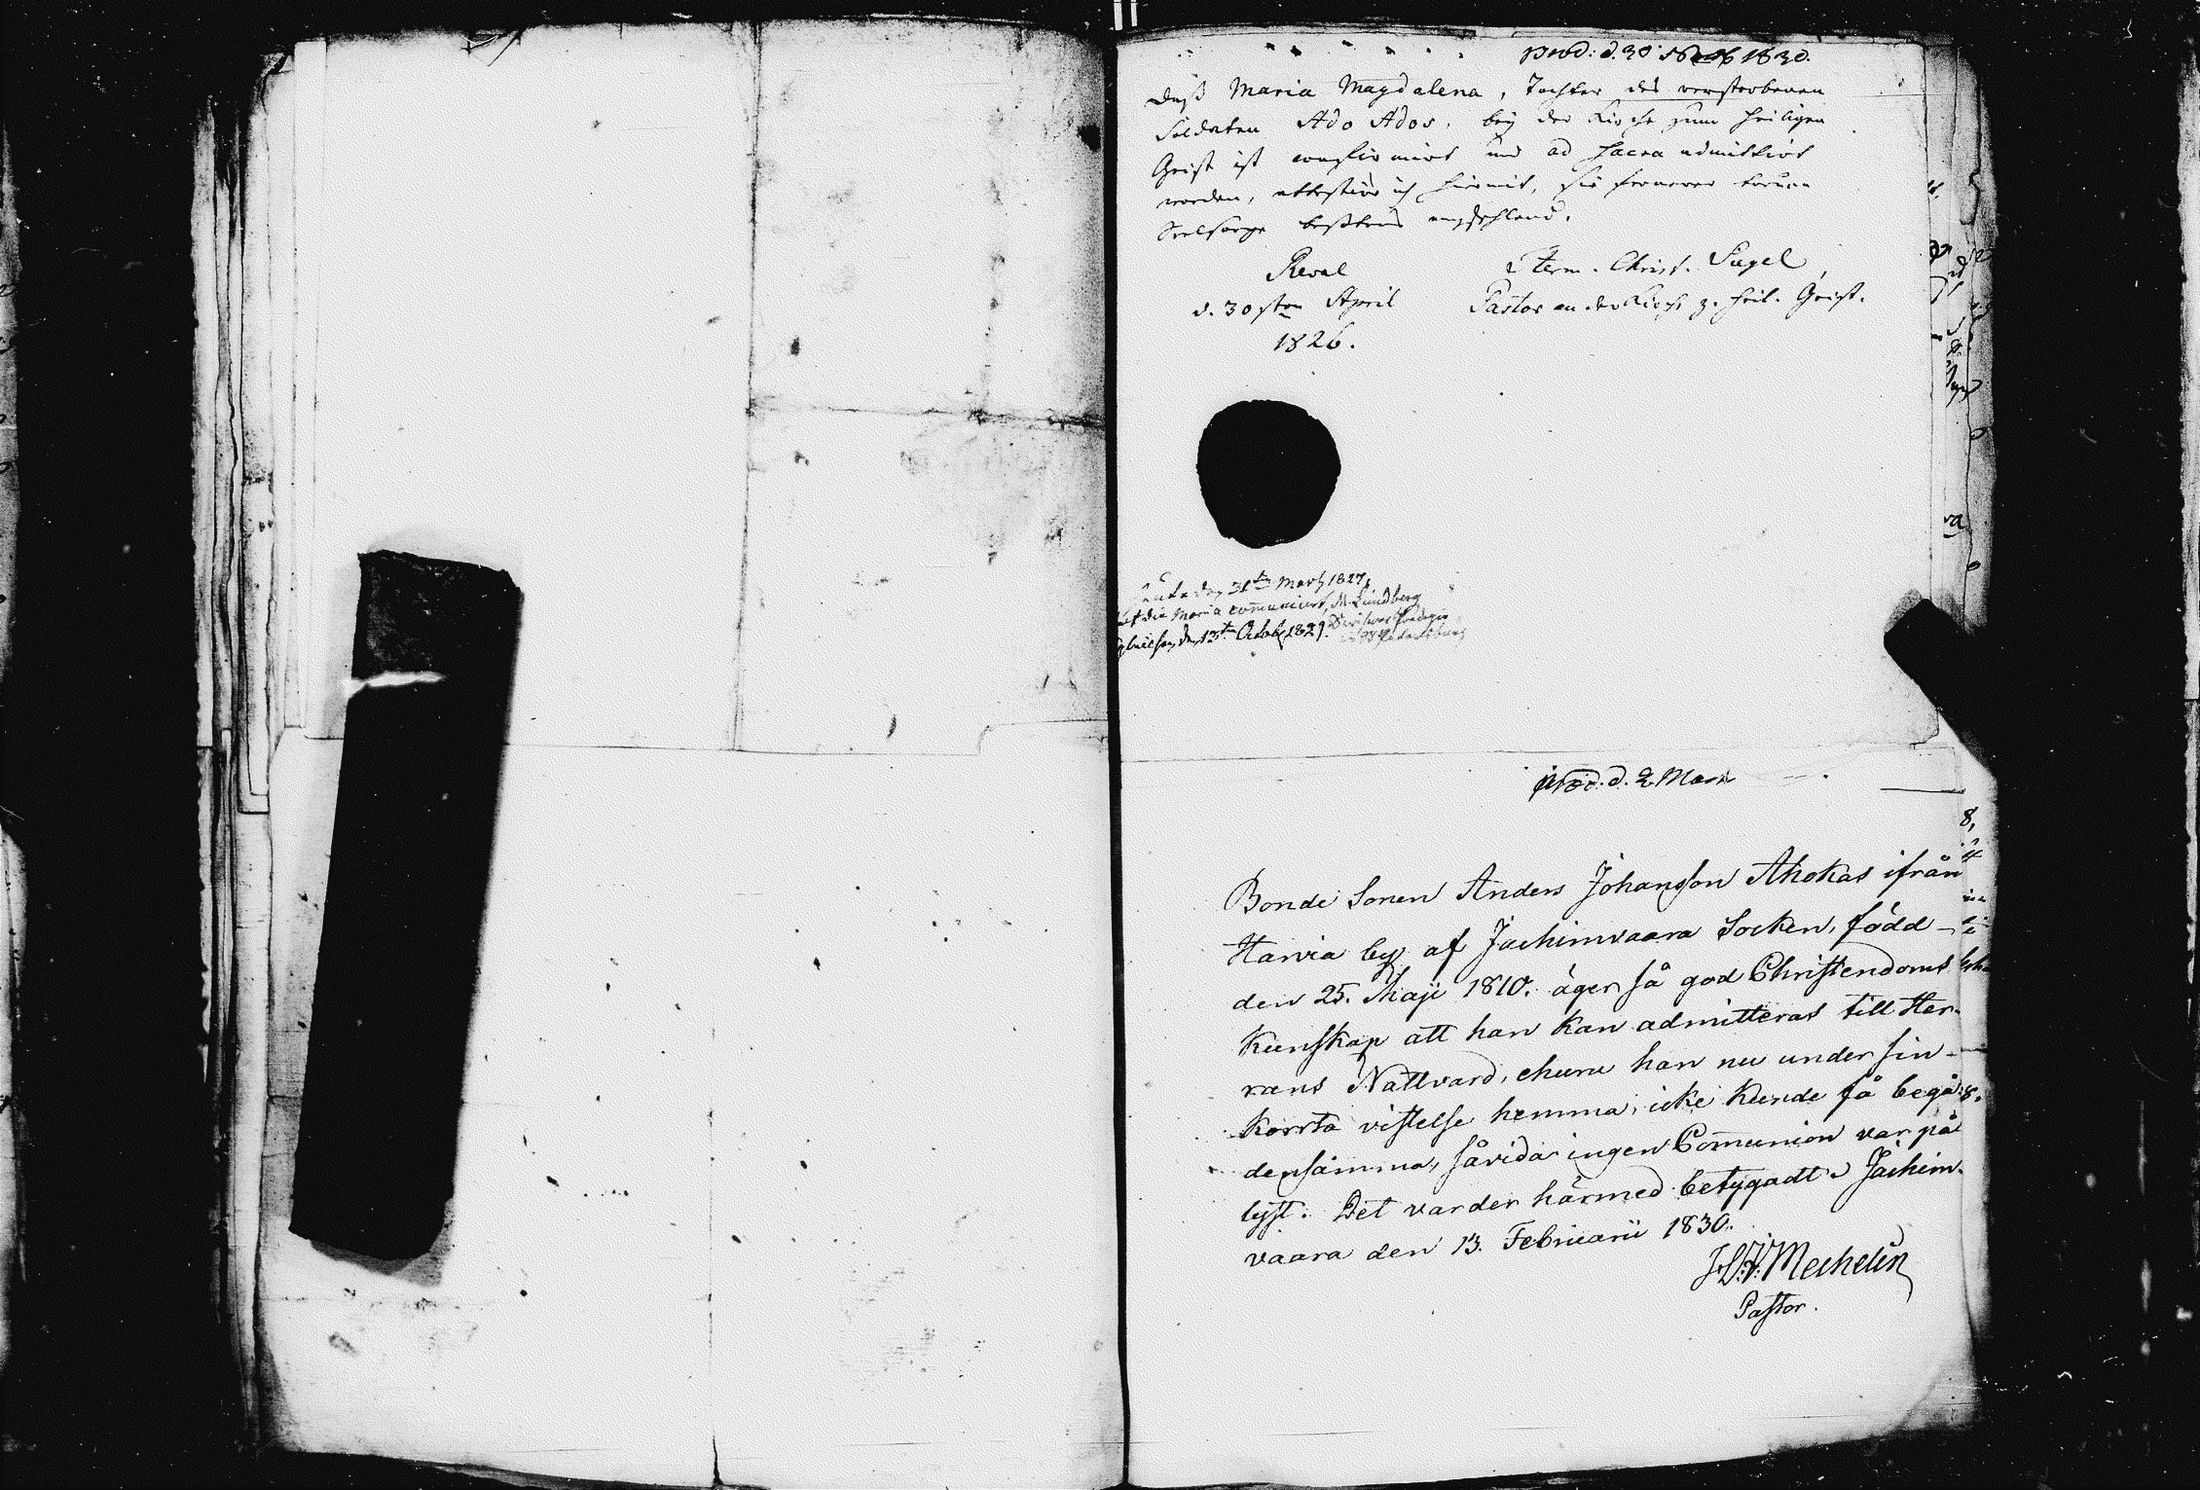 prod: d. 30 1830.
Daß Maria Magdalena, Tochter des verstorbenen
Soldaten Ado Ados, bey der Kirche zum heiligen
Geist ist confirmirt und ad sacra admittirt
worden, attestire ich hiermit, sie fernerer treuen
Seelsorge bestens empfehlend.
Reval
d. 30sten April
1826.
Herm. Christ. Sugel
Pastor an der Kirche z. heil. Geist.
Heute den 31ten März 1827,
hat die Maria com̅unicirt, M. Lundberg
den 13ten Octobr 1829.
prod. d. 2 Mars
Bonde Sonen Anders Johansson Ahokas ifrån
Harvia by af Jachimvaara Socken, född
den 25. Maji 1810. äger så god Christendoms
Kunskap att han kan admitteras till Her-
rans Nattvard, ehuru han nu under sin
korrta vistelse hemma, icke kunde få begå
densamma, såvida ingen Com̅union var på
lyst. Det varder härmed betygadt. Jachim-
vaara den 13. Februarii 1830.
Mechelin
Pastor.